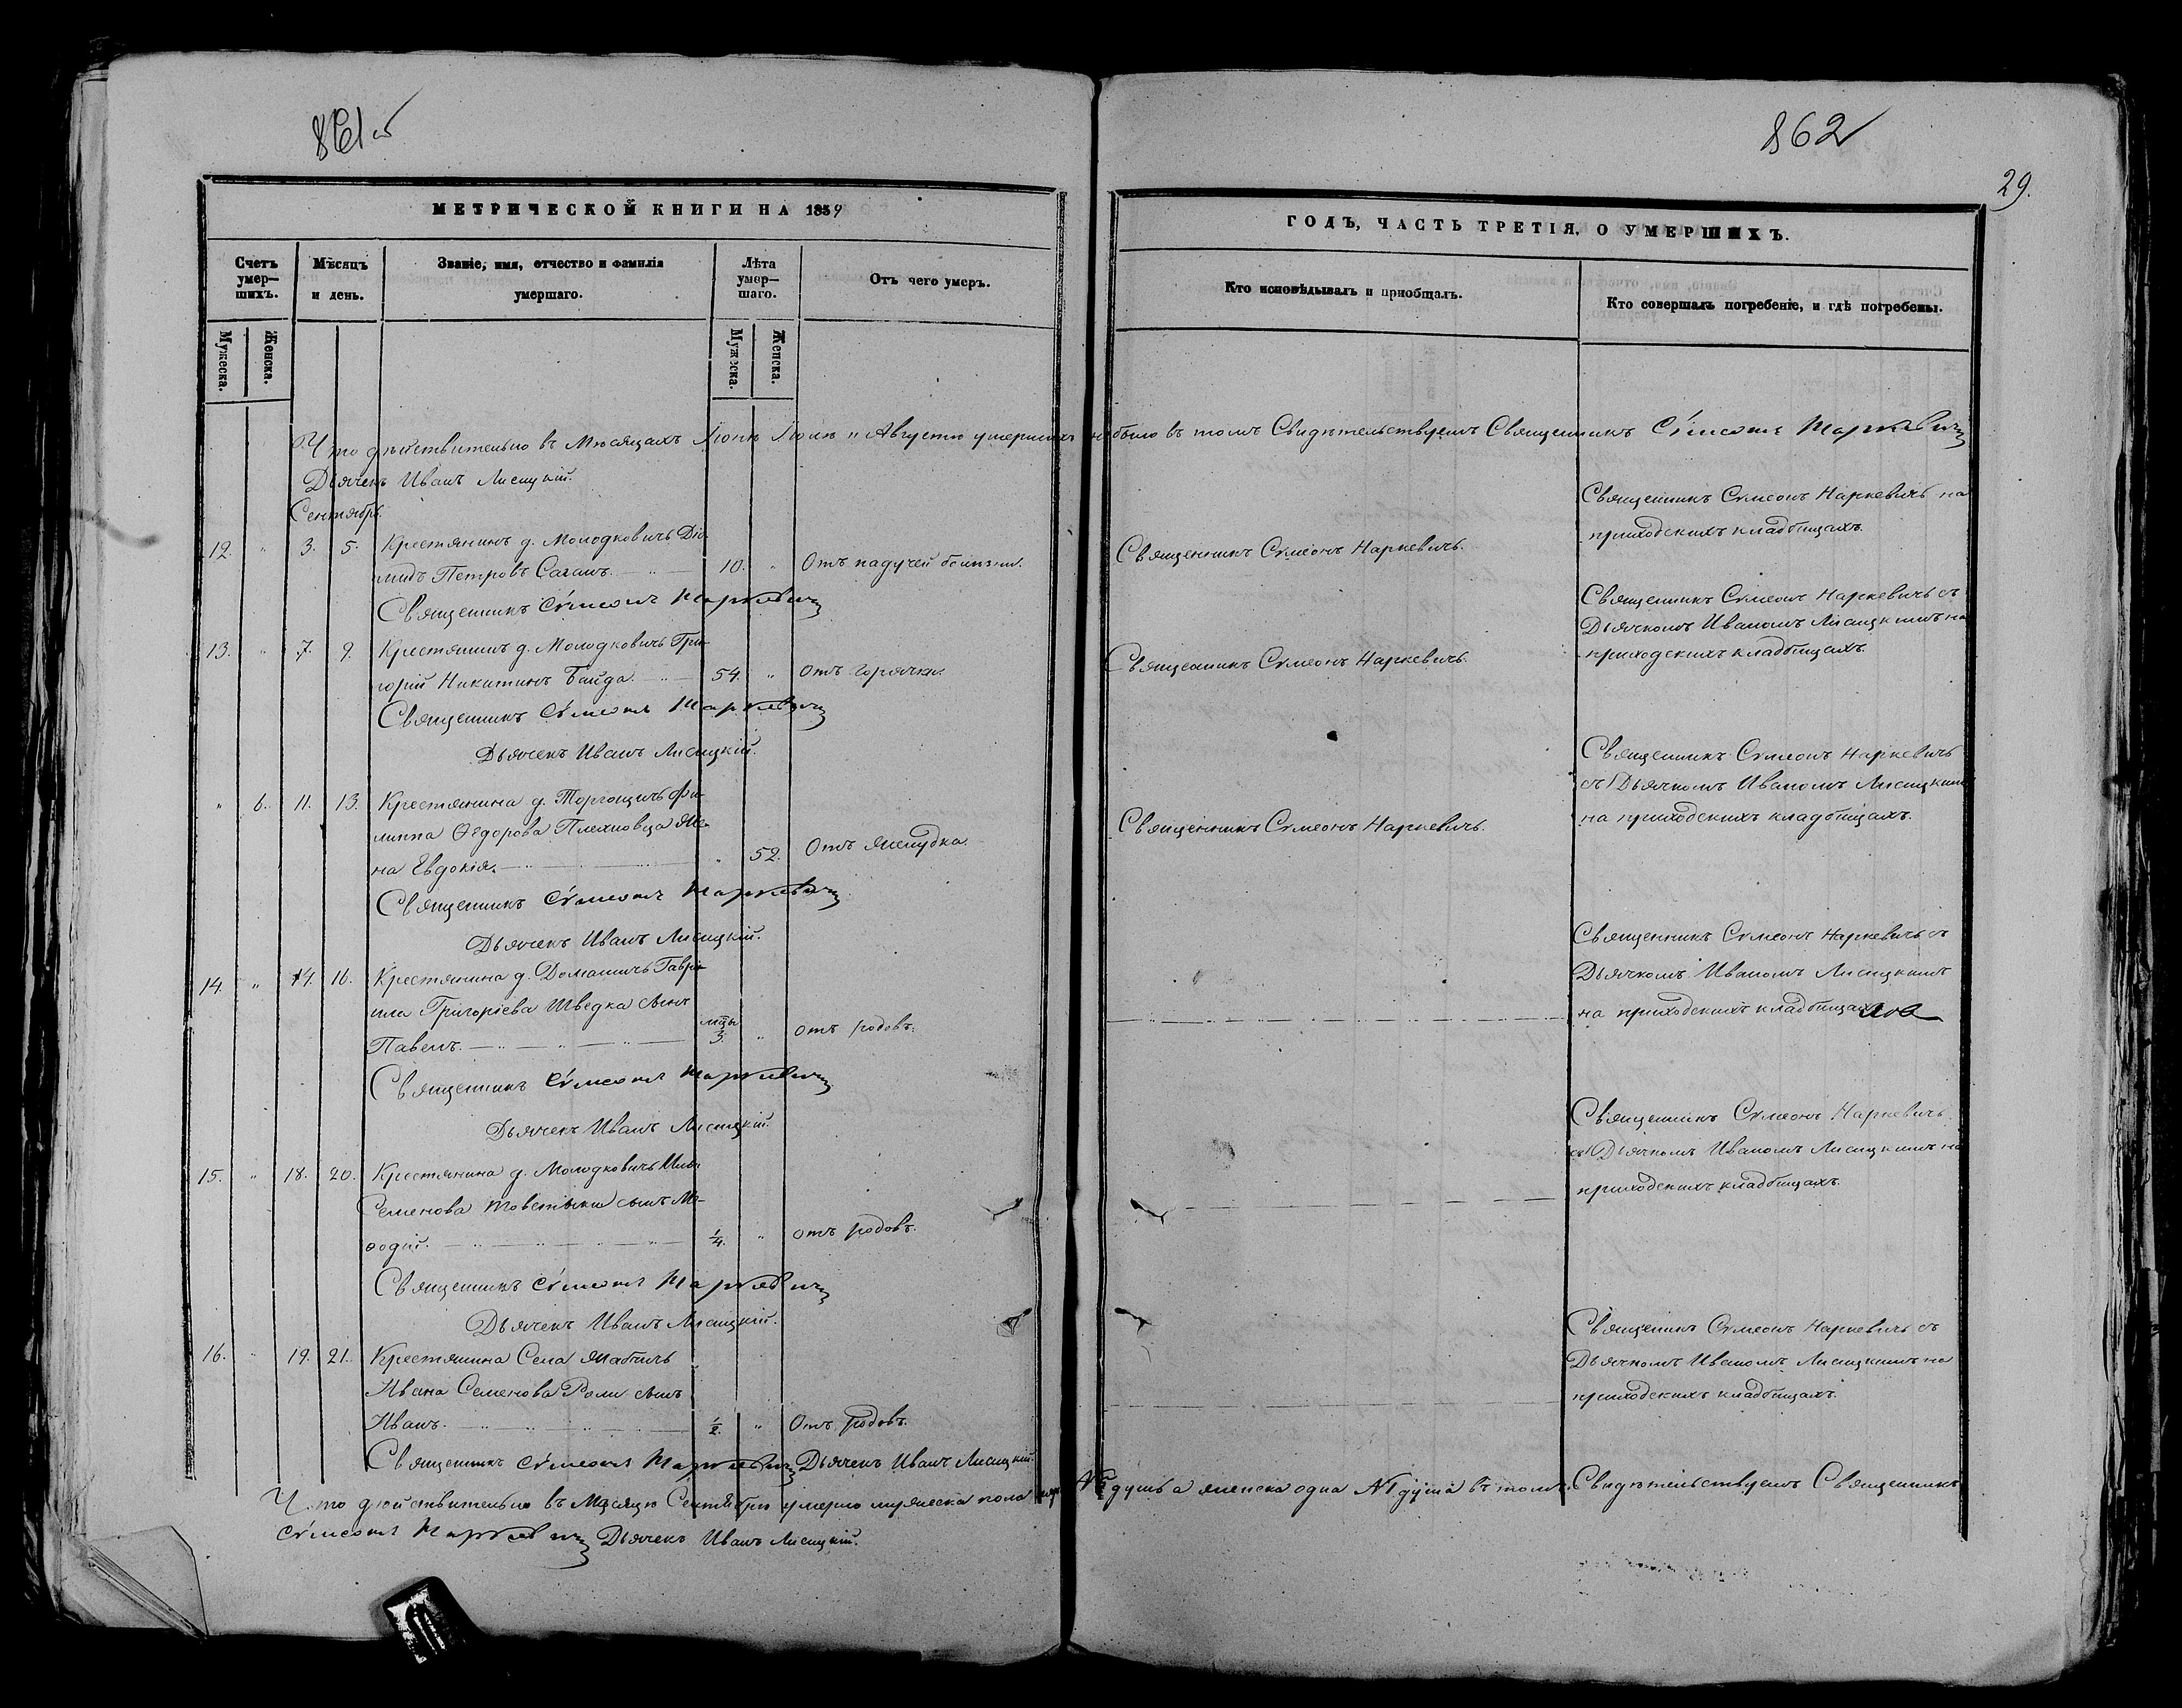 861 об
862
29.
МЕТРИЧЕСКОЙ КНИГИ НА 1859
ГОДЪ, ЧАСТЬ ТРЕТІЯ, О УМЕРШИХЪ.
Счетъ умер—шихъ.
Мѣсяцъ и день.
Званіе, имя, отчество и фамилія умершаго.
Лѣта умер—шаго.
Отъ чего умеръ.
Кто исповѣдывалъ и пріобщалъ.
Кто совершалъ погребеніе, и гдѣ погребены.
Мужеска.
Женска.
Мужеска.
Женска.
Что дѣйствительно въ Мѣсяцахъ Іюнѣ Іюлѣ и Августѣ умершихъ не было въ томъ Свидѣтельствуемъ Священникъ Сѵмеонъ Наркевичъ
Дьячекъ Иванъ Лисицкій.
Сентябрь.
12. " 3. 5. Крестянинъ д. Молодковичь Діо-
мидъ Петровъ Саганъ. 10. " Отъ падучей болѣзни.
Священникъ Сѵмеонъ Наркевичъ.
Священникъ Сѵмеонъ Наркевичъ на
приходскихъ кладбищахъ.
Священникъ Сѵмеонъ Наркевичъ
13. " 7. 9. Крестянинъ д. Молодковичь Гри-
горій Никитинъ Байда. 54. " Отъ горячки.
Священникъ Сѵмеонъ Наркевичъ.
Священникъ Сѵмеонъ Наркевичъ съ
Дьячкомъ Иваномъ Лисицкимъ на
приходскихъ кладбищахъ
Священникъ Сѵмеонъ Наркевичъ
Дьячекъ Иванъ Лисицкій.
" 6. 11. 13. Крестянина д. Торгощичь Фи-
липпа Ѳедорова Плехновца Же-
на Евдокія. " 52. Отъ желудка.
Священникъ Сѵмеонъ Наркевичъ.
Священникъ Сѵмеонъ Наркевичъ
съ Дьячкомъ Иваномъ Лисицкимъ
на приходскихъ кладбищахъ.
Священникъ Сѵмеонъ Наркевичъ
Дьячекъ Иванъ Лисицкій.
14. " 14. 16. Крестянина д. Домашичь Гаврі-
ила Григоріева Шведка сынъ
Павелъ. мцы 3. " отъ родовъ.
Священникъ Сѵмеонъ Наркевичъ съ
Дьячкомъ Иваномъ Лисицкимъ
на приходскихъ кладбищахъ
Священникъ Сѵмеонъ Наркевичъ
Дьячекъ Иванъ Лисицкій.
15. " 18. 20. Крестянина д. Молодковичь
Семенова сынъ Ме-
ѳодій. 1/4. " отъ родовъ.
Священникъ Сѵмеонъ Наркевичъ
съ Дьячкомъ Иваномъ Лисицкимъ на
приходскихъ кладбищахъ.
Священникъ Сѵмеонъ Наркевичъ
Дьячекъ Иванъ Лисицкій.
16. " 19. 21. Крестянина Села Жабчичь
Ивана Семенова Роли сынъ
Иванъ. 1/2. " Отъ родовъ.
Священникъ Сѵмеонъ Наркевичъ съ
Дьячкомъ Иваномъ Лисицкимъ на
приходскихъ кладбищахъ.
Священникъ Сѵмеонъ Наркевичъ Дьячекъ Иванъ Лисицкій.
Что дѣйствительно въ Мѣсяцѣ Сентябрѣ умерло мужеска пола душъ а женска одна №1 душа въ томъ Свидѣтельствуемъ Священникъ
Сѵмеонъ Наркевичъ Дьячекъ Иванъ Лисицкій.